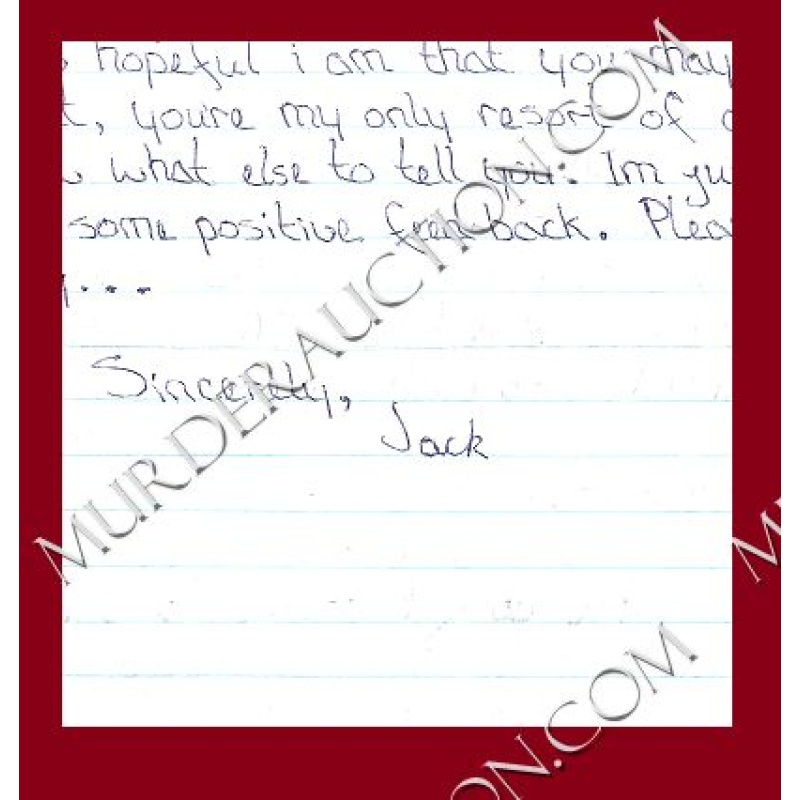 hopeful i am that you may
t, youre my only resort of
what else to tell you. Im
some positive back. Plea
...
Sincerely,
Jack
MURDERAUCTION.COM
ON.COM